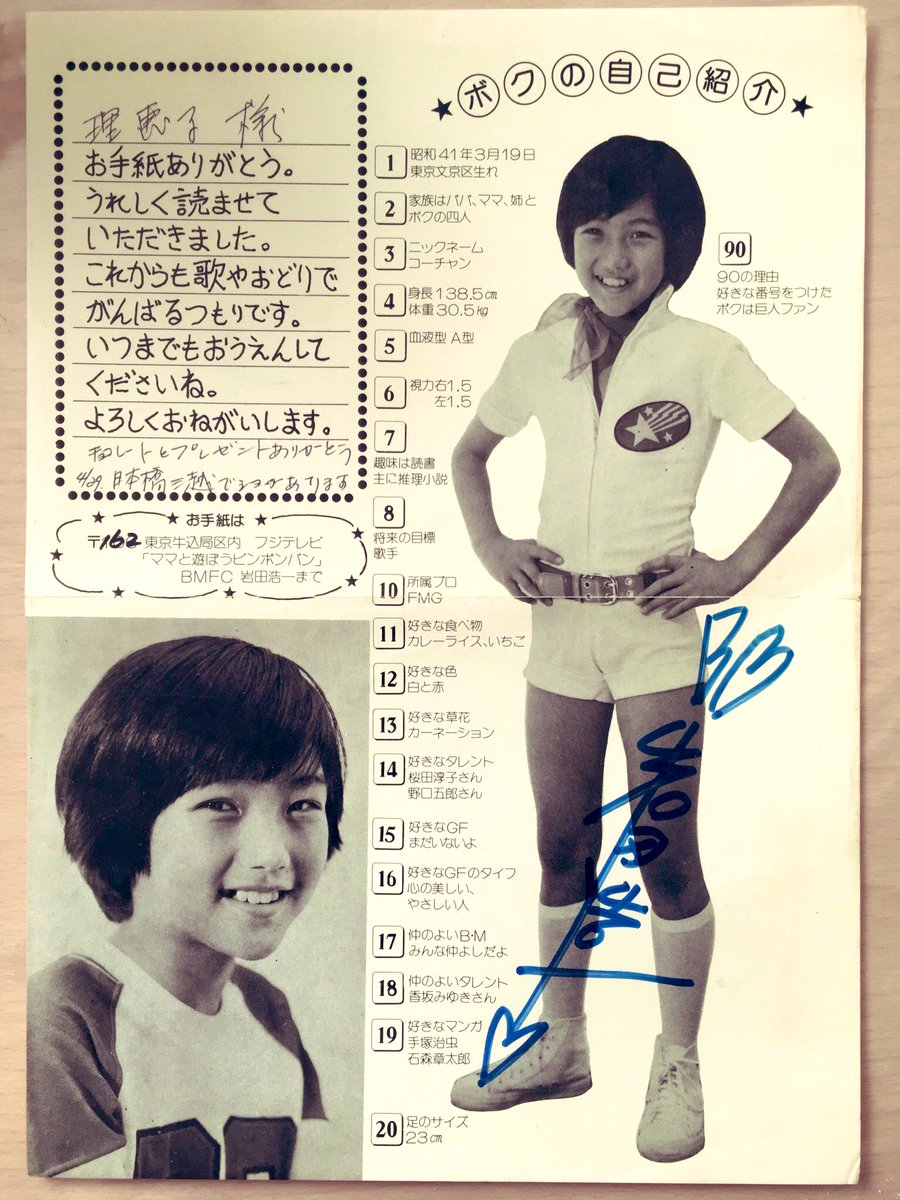 ★ボクの自己紹介★
理恵子 様
お手紙ありがとう。
うれしく読ませて
いただきました。
これからも歌やおどりで
がんばるつもりです。
いつまでもおうえんして
くださいね。
よろしくおねがいします。
チョコレートとプレゼントありがとう
4/29 日本橋三越でショウがあります
お手紙は
〒162 東京牛込局区内 フジテレビ
「ママと遊ぼうピンポンパン」
BMFC 岩田浩一まで
1 昭和41年3月19日
東京文京区生れ
2 家族はパパ、ママ、姉と
ボクの四人
3 ニックネーム
コーチャン
4 身長138.5cm
体重30.5kg
5 血液型 A型
6 視力右1.5
左1.5
7
趣味は読書
主に推理小説
8
将来の目標
歌手
10 所属プロ
FMG
11 好きな食べ物
カレーライス、いちご
12 好きな色
白と赤
13 好きな草花
カーネーション
14 好きなタレント
桜田淳子さん
野口五郎さん
15 好きなGF
まだいないよ
16 好きなGFのタイプ
心の美しい、
やさしい人
17 仲のよいB・M
みんな仲よしだよ
18 仲のよいタレント
香坂みゆきさん
19 好きなマンガ
手塚治虫
石森章太郎
20 足のサイズ
23cm
90
90の理由
好きな番号をつけた
ボクは巨人ファン